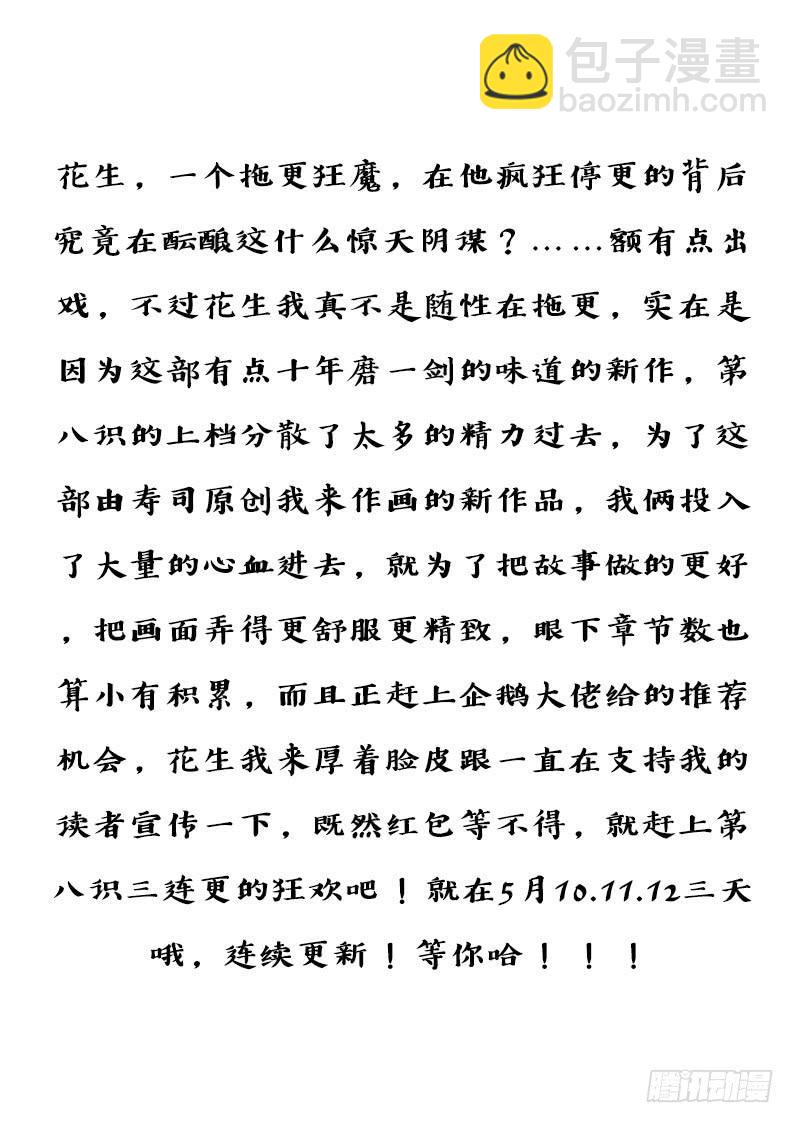 包子漫畫
baozimh.com
花生，一个拖更狂魔，在他疯狂停更的背后
究竟在酝酿这什么惊天阴谋？……额有点出
戏，不过花生我真不是随性在拖更，实在是
因为这部有点十年磨一剑的味道的新作，第
八识的上档分散了太多的精力过去，为了这
部由寿司原创我来作画的新作品，我俩投入
了大量的心血进去，就为了把故事做的更好
，把画面弄得更舒服更精致，眼下章节数也
算小有积累，而且正赶上企鹅大佬给的推荐
机会，花生我来厚着脸皮跟一直在支持我的
读者宣传一下，既然红包等不得，就赶上第
八识三连更的狂欢吧！就在5月10.11.12三天
哦，连续更新！等你哈！！！
腾讯动漫